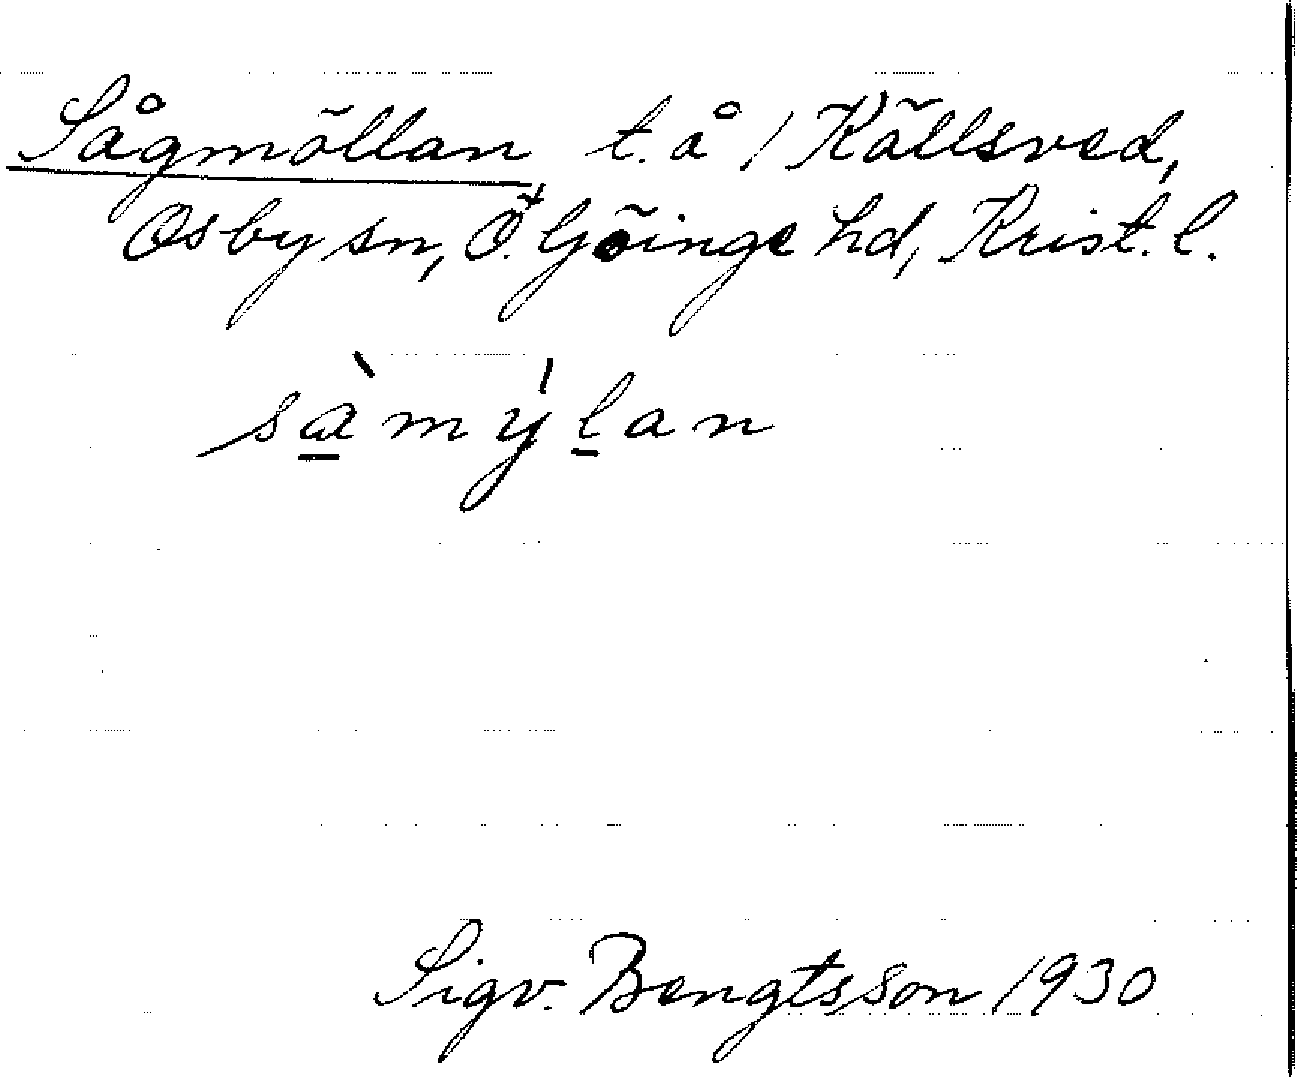 Sågmöllan t. å 1 Källsved,
Osby sn, Ö. Göinge hd, Krist. l.
sàmýlan
Sigv. Bengtsson 1930